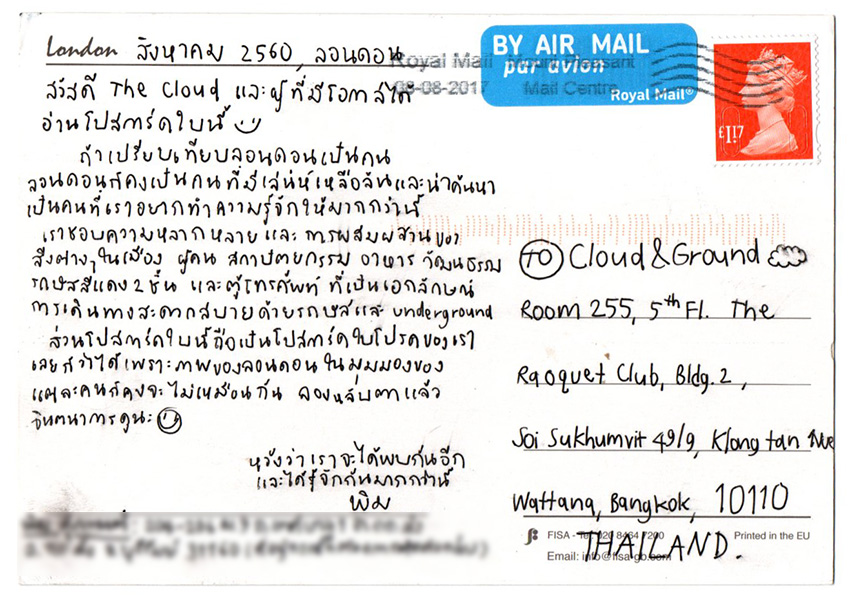 London สิงหาคม 2560, ลอนดอน
สวัสดี The Cloud และผู้ที่มีโอกาสได้
อ่านโปสการ์ดใบนี้
ถ้าเปรียบเทียบลอนดอนเป็นคน
ลอนดอนก็คงเป็นคนที่มีเสน่ห์เหลือล้นและน่าค้นหา
เป็นคนที่เราอยากทำความรู้จักให้มากกว่านี้
เราชอบความหลากหลายและ การผสมผสานของ
สิ่งต่างๆในเมือง ผู้คน สถาปัตยกรรม อาหาร วัฒนธรรม
รถบัสสีแดง 2 ชั้น และตู้โทรศัพท์ ที่เป็นเอกลักษณ์
การเดินทางสะดวกสบายด้วยรถบัสและ underground
ส่วนโปสการ์ดใบนี้ถือเป็นโปสการ์ดใบโปรดของเรา
เลยก็ว่าได้เพราะภาพของลอนดอนในมุมมองของ
แต่ละคนก็คงจะไม่เหมือนกัน ลองหลับตาแล้ว
จินตนาการดูนะ
หวังว่าเราจะได้พบกันอีก
และได้รู้จักกันมากกว่านี้
พิม
Royal Mail Mount Pleasant
08-08-2017 Mail Centre
BY AIR MAIL
par avion
Royal Mail®
£1.17
TO Cloud & Ground
Room 255, 5th Fl. The
Racquet Club, Bldg. 2,
Soi Sukhumvit 49/9, Klong tan Nue
Wattana, Bangkok, 10110
THAILAND.
FISA - Tel: 020 8464 7200
Printed in the EU
Email: info@fisa-go.com